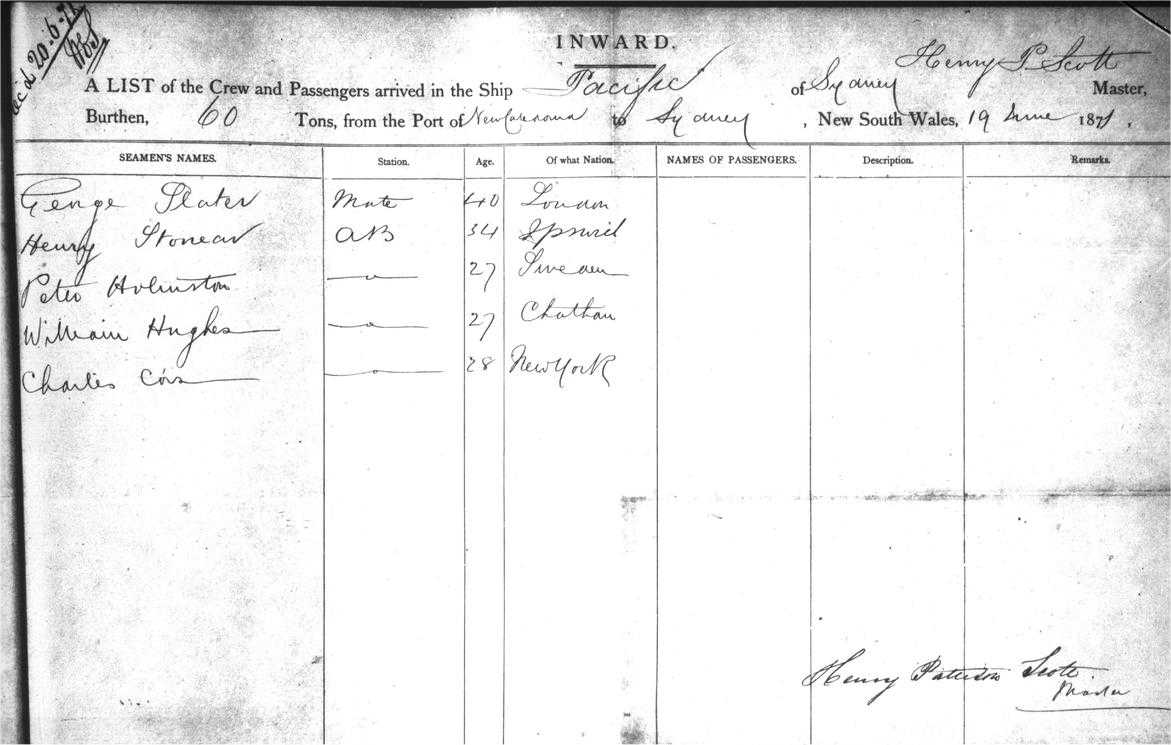 Rec'd 20.6.71
INWARD.
Henry P. Scott
A LIST of the Crew and Passengers arrived in the Ship Pacific of Sydney Master,
Burthen, 60 Tons, from the Port of New Caledonia to Sydney, New South Wales, 19 June 1871.
SEAMEN'S NAMES. Station. Age. Of what Nation. NAMES OF PASSENGERS. Description. Remarks.
George Slater Mate 40 London
Henry AB 34
Peter 27 Sweden
William Hughes 27 Chatham
Charles 28 New York
Henry Patterson Scott
Master